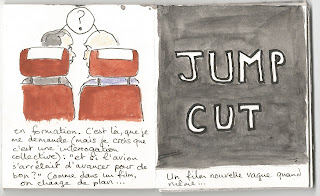 ?
en formation. C'est là, que je
me demande (mais je crois que
c'est une interrogation
collective) : "et si l'avion
s'arrêtait d'avancer pour de
bon ?" (comme dans un film,
on change de plan...
JUMP
CUT
Un film nouvelle vague quand
même...